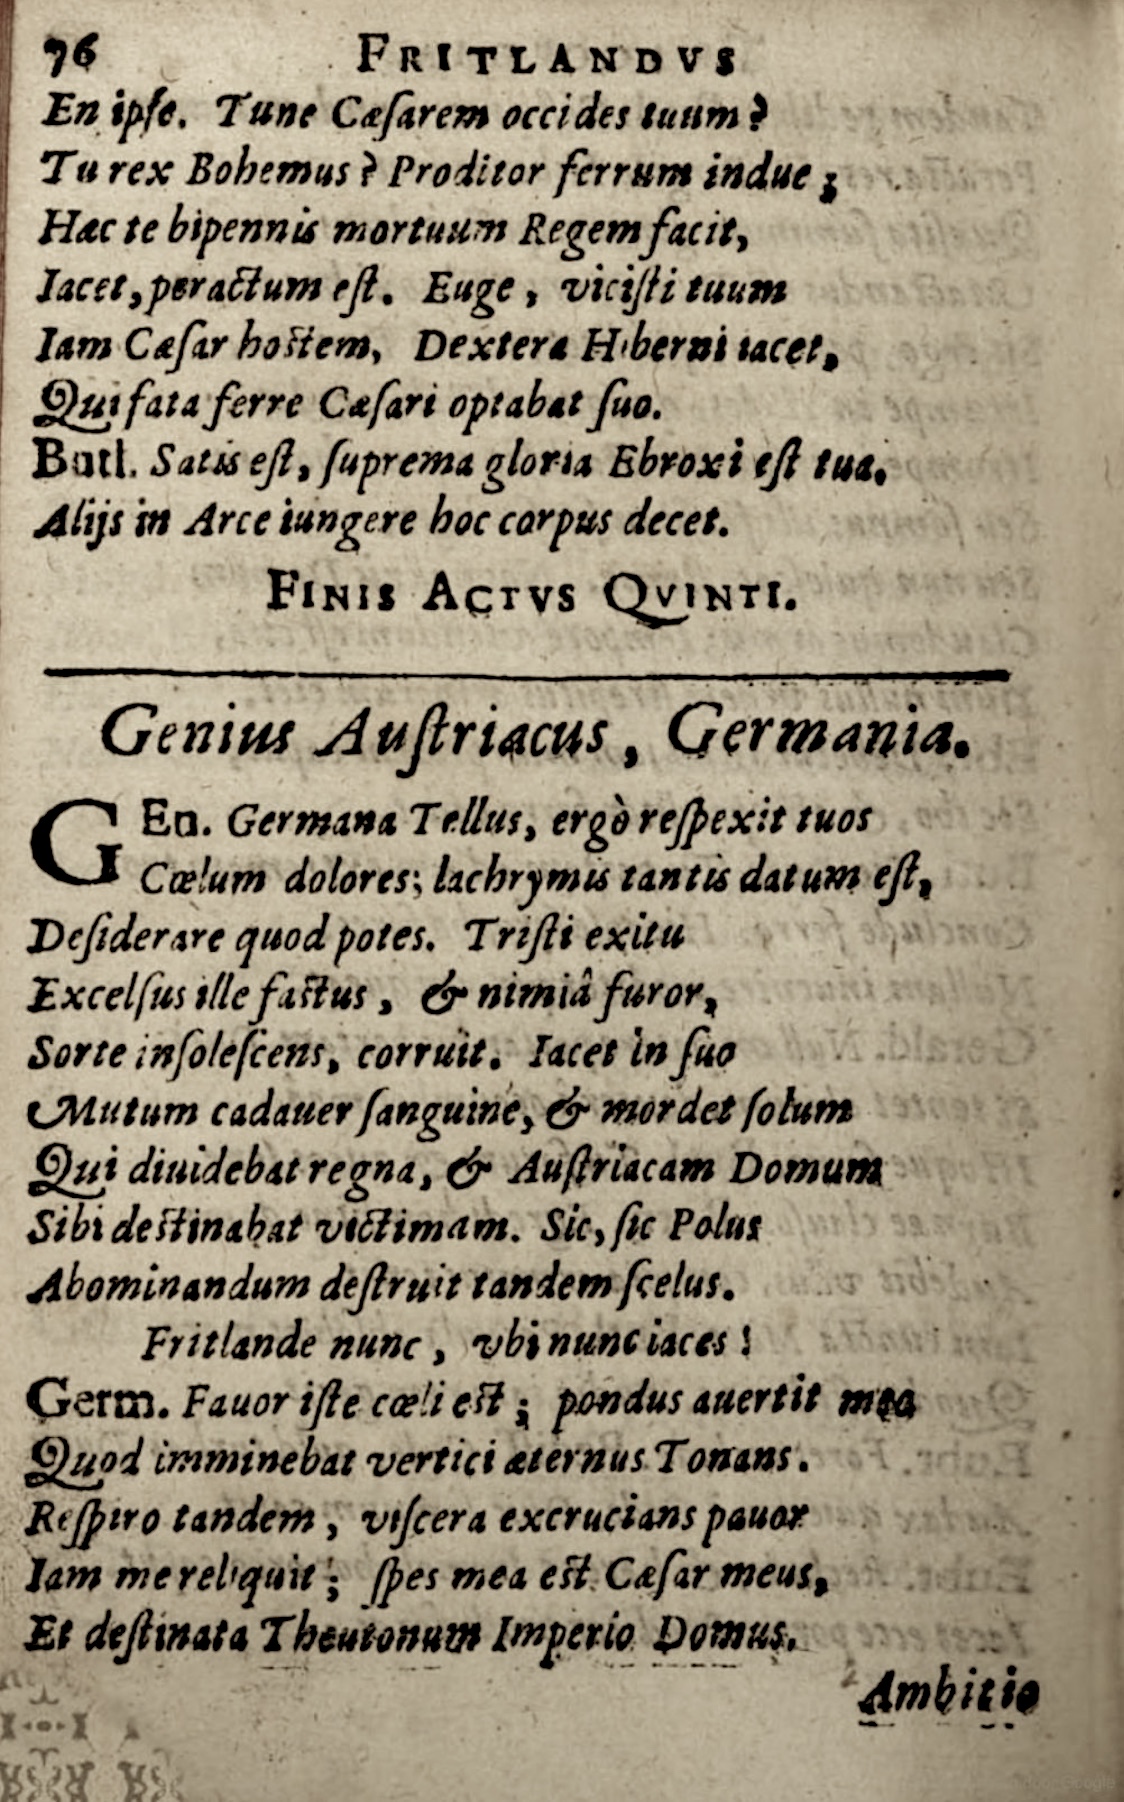 76 FRITLANDVS
En ipſe. Tune Cæſarem occides tuum?
Tu rex Bohemus? Proditor ferrum indue;
Hæc te bipennis mortuum Regem facit,
Iacet, peractum eſt. Euge, viciſti tuum
Iam Cæſar hoſtem, Dextera Hiberni iacet,
Qui fata ferre Cæſari optabat ſuo.
Butl. Satis eſt, ſuprema gloria Ebroxi eſt tua.
Alijs in Arce iungere hoc corpus decet.
FINIS ACTVS QVINTI.
Genius Auſtriacus, Germania.
GEn. Germana Tellus, ergò reſpexit tuos
Cœlum dolores; lachrymis tantis datum eſt,
Deſiderare quod potes. Triſti exitu
Excelſus ille faſtus, & nimiâ furor,
Sorte inſoleſcens, corruit. Iacet in ſuo
Mutum cadauer ſanguine, & mordet ſolum
Qui diuidebat regna, & Auſtriacam Domum
Sibi deſtinabat victimam. Sic, ſic Polus
Abominandum deſtruit tandem ſcelus.
Fritlande nunc, vbi nunc iaces!
Germ. Fauor iſte cœli eſt; pondus auertit mea
Quod imminebat vertici æternus Tonans.
Reſpiro tandem, viſcera excrucians pauor
Iam me reliquit; ſpes mea eſt Cæſar meus,
Et deſtinata Theutonum Imperio Domus.
Ambitio